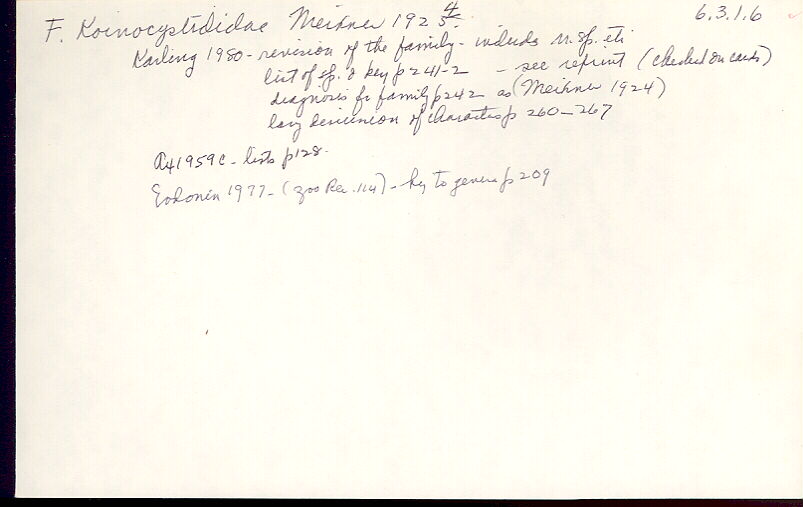 F. Koinocystididae Meixner 1925 4 6.3.1.6
Karling 1980 - revision of the family - includes n. sp. etc
list of sp. & key p 241-2 - see reprint (checked on cards)
diagnosis for family p 242 as (Meixner 1924)
long discussion of characters p 260-267
1959c - lists p 128.
1977 - (Zoo Rec. 114) - key to genera p 209